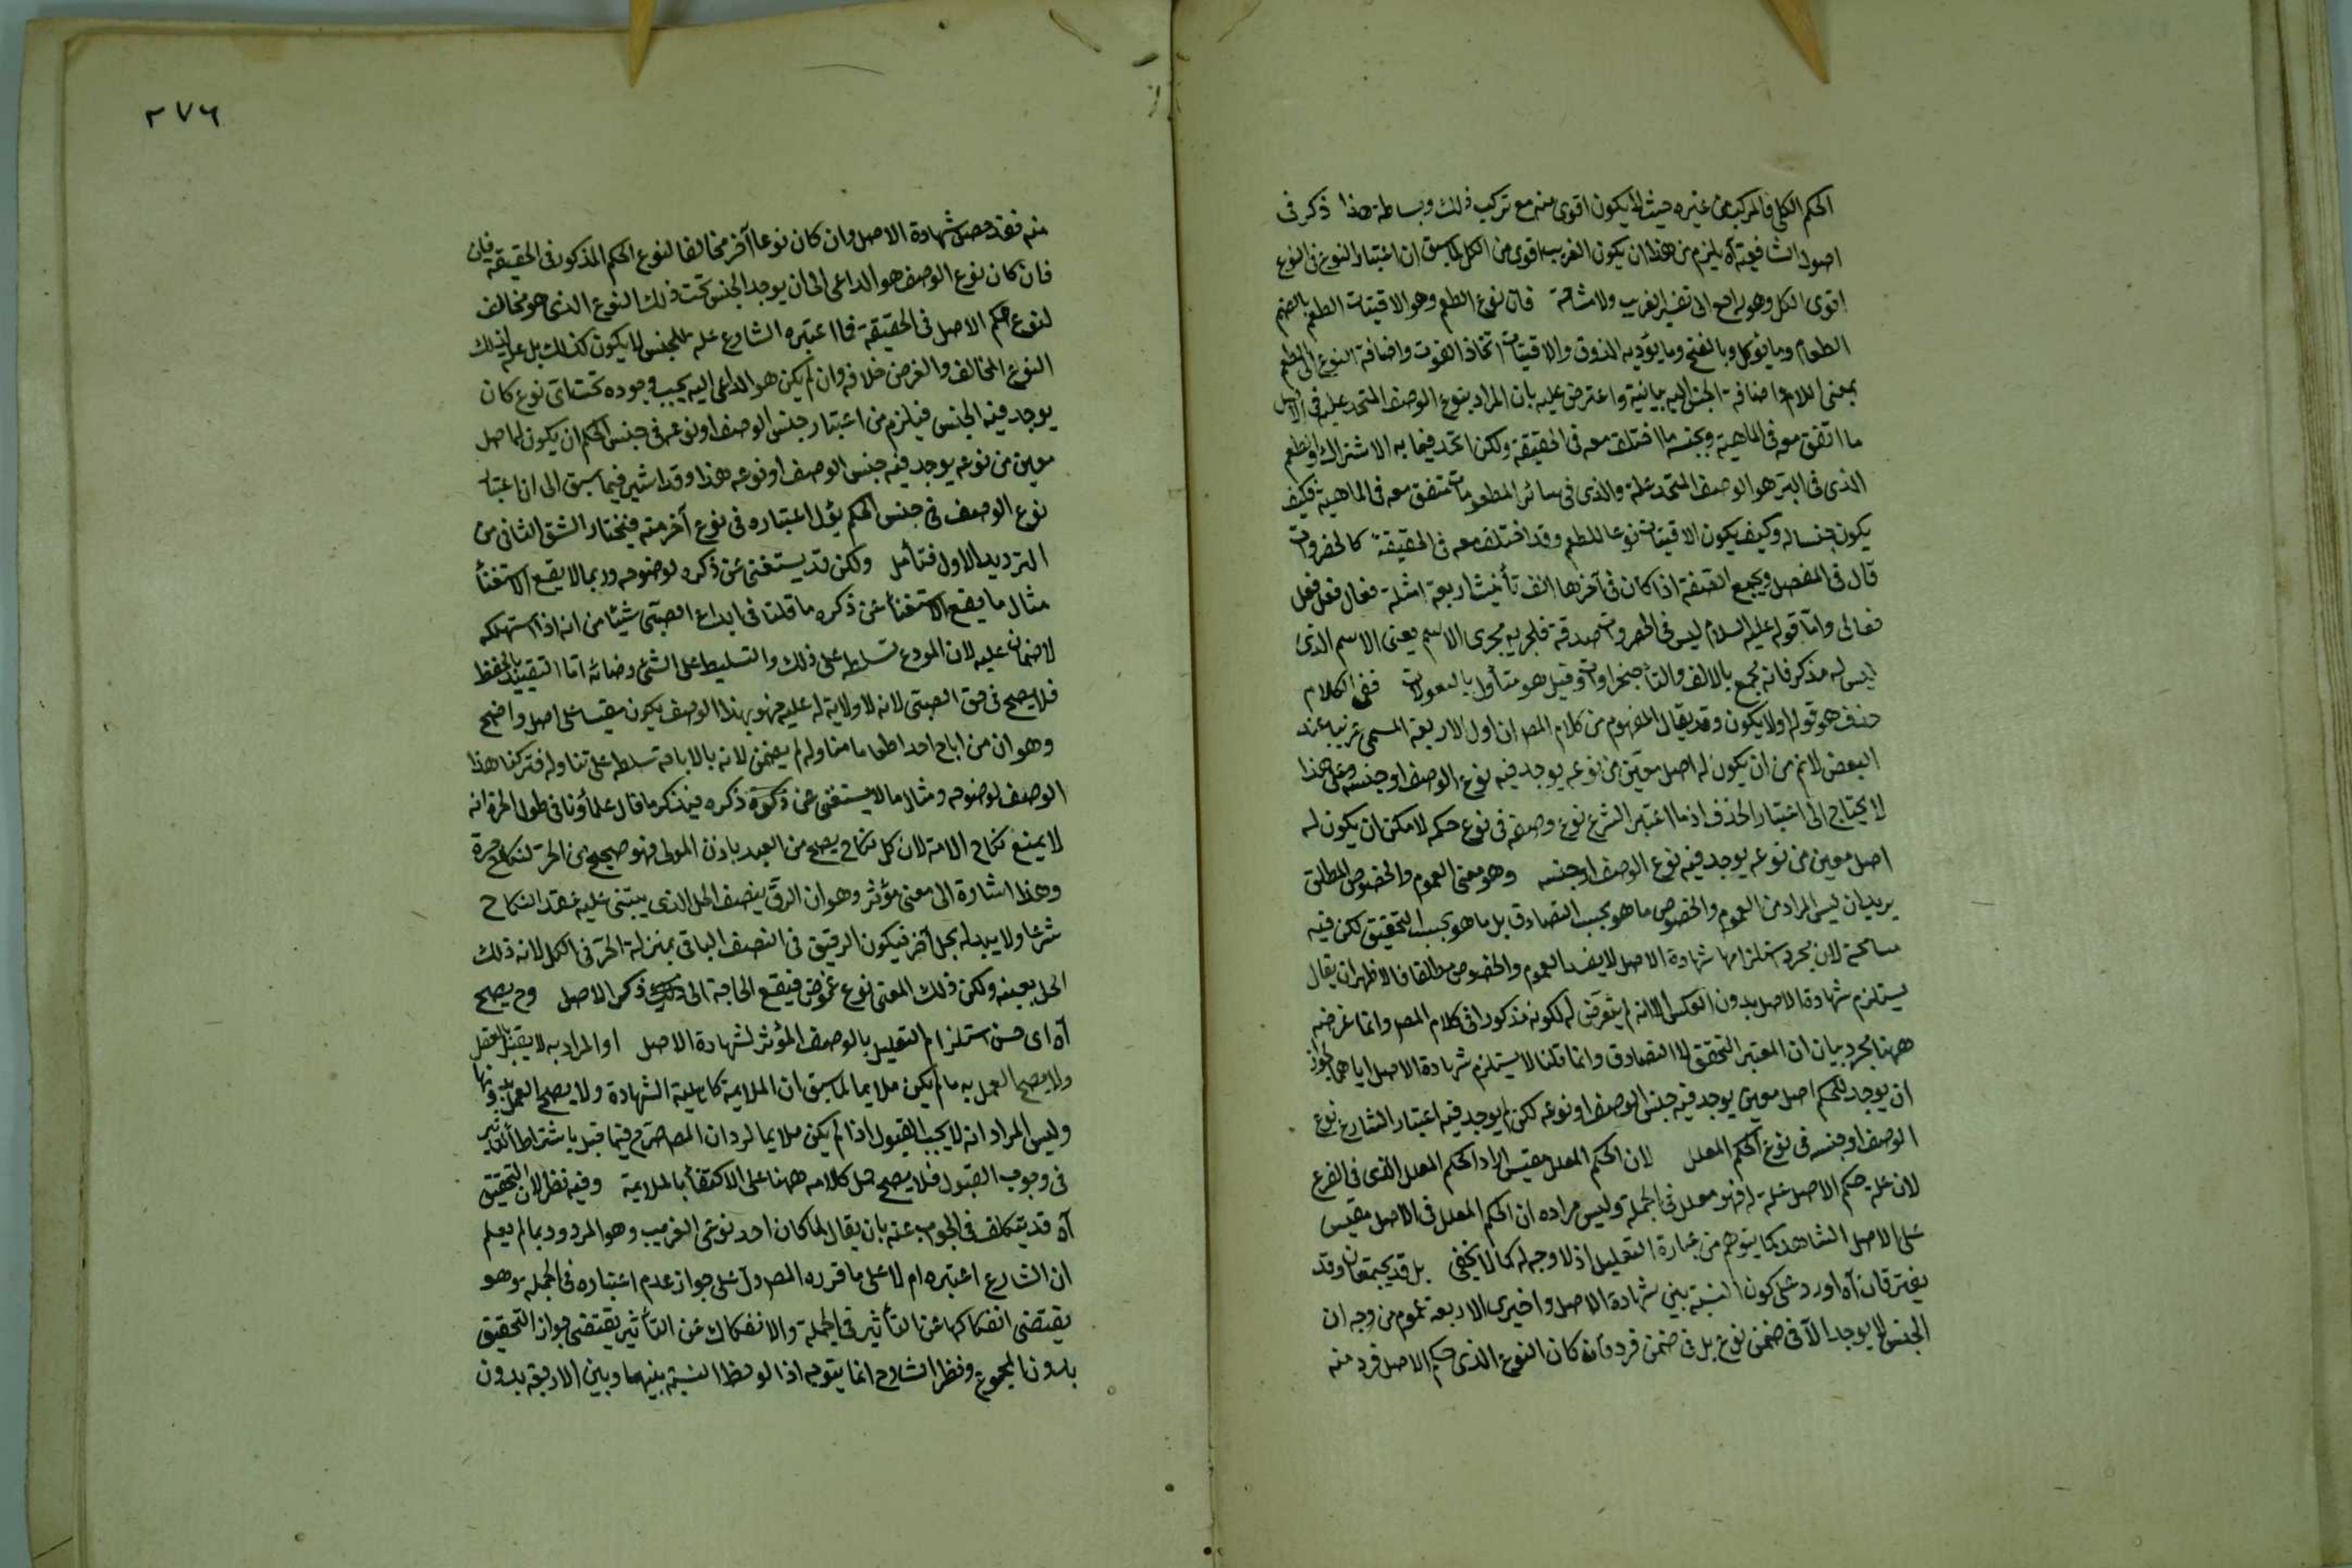 الحكم الكلى فالمركب من غيره حيث لا يكون اقوى منه مع تركب ذلك وبساطة هذا ذكر فى
اصول الشافعية آه يلزم من هذا ان يكون الغريب اقوى من الكل لما سبق ان اعتبار النوع فى النوع
اقوى الكل وهو راجع الى تفسير الغريب ولا مشاحة فان نوع الطعم وهو الاقتيات الطعم بالضم
الطعام وما يؤكل وبالفتح وما يؤديه الذوق والاقتيات اتخاذ القوت واضافة النوع الى الطعم
بمعنى اللام واضافة الجنس اليه بيانية واعترض عليه بان المراد بنوع الوصف المتحد عليه فى الاصل
ما اتفق معه فى الماهية وبجنسه ما اختلف معه فى الحقيقة ولكن اتحد فيما به الاشتراك والطعم
الذى فى البر هو الوصف المتحد علة والذى فى سائر المطعومات متفق معه فى الماهية فكيف
يكون جنسا له وكيف يكون الاقتيات نوعا للطعم وقد اختلف معه فى الحقيقة كالخضروات
قال فى المفصل ويجمع الصفة اذا كان فى آخرها الف تأنيث اربعة امثلة فعال فعل فعل
فعالى واما قوله عليه السلام ليس فى الخضروات صدقة فلجريه مجرى الاسم يعنى الاسم الذى
ليس له مذكر فانه يجمع بالالف والتاء وقيل هو متأول بالبقولات ففى الكلام
حذف هو قوله اولا يكون وقد يقال المفهوم من كلام المص ان اول الاربعة المسمى غريبا عند
البعض لا ثم من ان يكون له اصل معين من نوعه يوجد فيه نوع الوصف او جنسه وعلى هذا
لا يحتاج الى اعتبار الحذف اذ ما اعتبر الشرع نوع وصفه فى نوع حكمه لا مكن ان يكون له
اصل معين من نوعه يوجد فيه نوع الوصف او جنسه وهو معنى العموم والخصوص المطلق
يريد ان ليس المراد من العموم والخصوص ما هو بحسب التصادق بل ما هو بحسب التحقيق لكن فيه
مسامحة لان مجرد استلزامها شهادة الاصل لا يفيد العموم والخصوص مطلقا فالاظهر ان يقال
يستلزم شهادة الاصل بدون العكس الا انه لم يتعرض له لكونه مذكورا فى كلام المص وانما غرضه
ههنا مجرد بيان ان المعتبر التحقق لا التصادق وانما قلنا لا يستلزم شهادة الاصل اياهما لجواز
ان يوجد للحكم اصل معين يوجد فيه جنس الوصف او نوعه لكن لم يوجد فيه اعتبار الشارع نوع
الوصف او جنسه فى نوع الحكم المعلل لان الحكم المعلل مقيس اراد الحكم المعلل الذى فى الفرع
لان علة حكم الاصل علة له فهو معلل فى الجملة وليس مراده ان الحكم المعلل فى الاصل مقيس
على الاصل الشاهد كما يتوهم من عبارة التعليل اذ لا وجه له كما لا يخفى بل قد يجتمعان وقد
يفترقان آه اورد على كون النسبة بين شهادة الاصل واخيرى الاربعة عموم من وجه ان
الجنس لا يوجد الا فى ضمن نوع بل فى ضمن فرد فان كان النوع الذى حكم الاصل فرد منه
٢٧٦
منه فقد حصل شهادة الاصل وان كان نوعا آخر مخالفا لنوع الحكم المذكور فى الحقيقة
فان كان نوع الوصف هو الداعى الى ان يوجد الجنس تحت ذلك النوع الذى هو مخالف
لنوع حكم الاصل فى الحقيقة فما اعتبره الشارع علة للجنس لا يكون كذلك بل علة لذلك
النوع المخالف والفرض خلافه وان لم يكن هو الداعى اليه يجب وجوده تحت اى نوع كان
يوجد فيه الجنس فيلزم من اعتبار جنس الوصف او نوعه فى جنس الحكم ان يكون له اصل
معين من نوعه يوجد فيه جنس الوصف او نوعه هذا وقد اشير فيما سبق الى ان اعتبار
نوع الوصف فى جنس الحكم يؤل اعتباره فى نوع آخر منه فيختار الشق الثانى من
الترديد الاول فتأمل ولكن قد يستغنى عن ذكره لوضوحه وربما لا يقع الاستغناء
مثال ما يقع الاستغناء عن ذكره ما قلنا فى ايداع الصبى شيئا من انه اذا استهلكه
لا ضمان عليه لان المودع تسلطه على ذلك والتسليط على الشئ رضائه اما التقييد بالحفظ
فلا يصح فى حق الصبى لانه لا ولاية له عليه فهو بهذا الوصف يكون مقيسا على اصل واضح
وهو ان من اباح احدا طعاما فتناوله لم يضمن لانه بالاباحة تسلطه على تناوله فتركنا هذا
الوصف لوضوحه ومثال ما لا يستغنى عن ذكره فيذكر ما قال علماؤنا فى طول الحرة انه
لا يمنع نكاح الامة لان كل نكاح يصح من العبد باذن المولى فهو صحيح من الحر كنكاح حرة
وهذا اشارة الى معنى مؤثر وهو ان الرق ينصف الحل الذى يبتنى عليه عقد النكاح
شرعا ولا يبدله بحل آخر فيكون الرقيق فى النصف الباقى بمنزلة الحر فى الكل لانه ذلك
الحل بعينه ولكن ذلك المعنى نوع غموض فيقع الحاجة الى ذكر الاصل وح يصح
آه اى حسن استلزام التعليل بالوصف المؤثر لشهادة الاصل او المراد به لا يقبل العقل
ولا يصح العمل به ما لم يكن ملايما لما سبق ان الملايمة كاهلية الشهادة ولا يصح العمل بدونها
وليس المراد انه لا يجب القبول اذا لم يكن ملايما لرد ان المص صرح فيما قبل باشتراط التأثير
فى وجوب القبول فلا يصح حمل كلامه ههنا على الاكتفاء بالملايمة وفيه نظر لان التحقيق
آه قد يتكلف فى الجواب عنه بان يقال لما كان احد نوعى الغريب وهو المردود بما لم يعلم
ان الشارع اعتبره ام لا على ما قرره المص دل على جواز عدم اعتباره فى الجملة وهو
يقتضى انفكاكها عن التأثير فى الجملة والانفكاك عن التأثير يقتضى جواز التحقيق
بدون المجموع ونظر الشارح انما يتوجه اذا لوحظ النسبة بينهما وبين الاربعة بدون